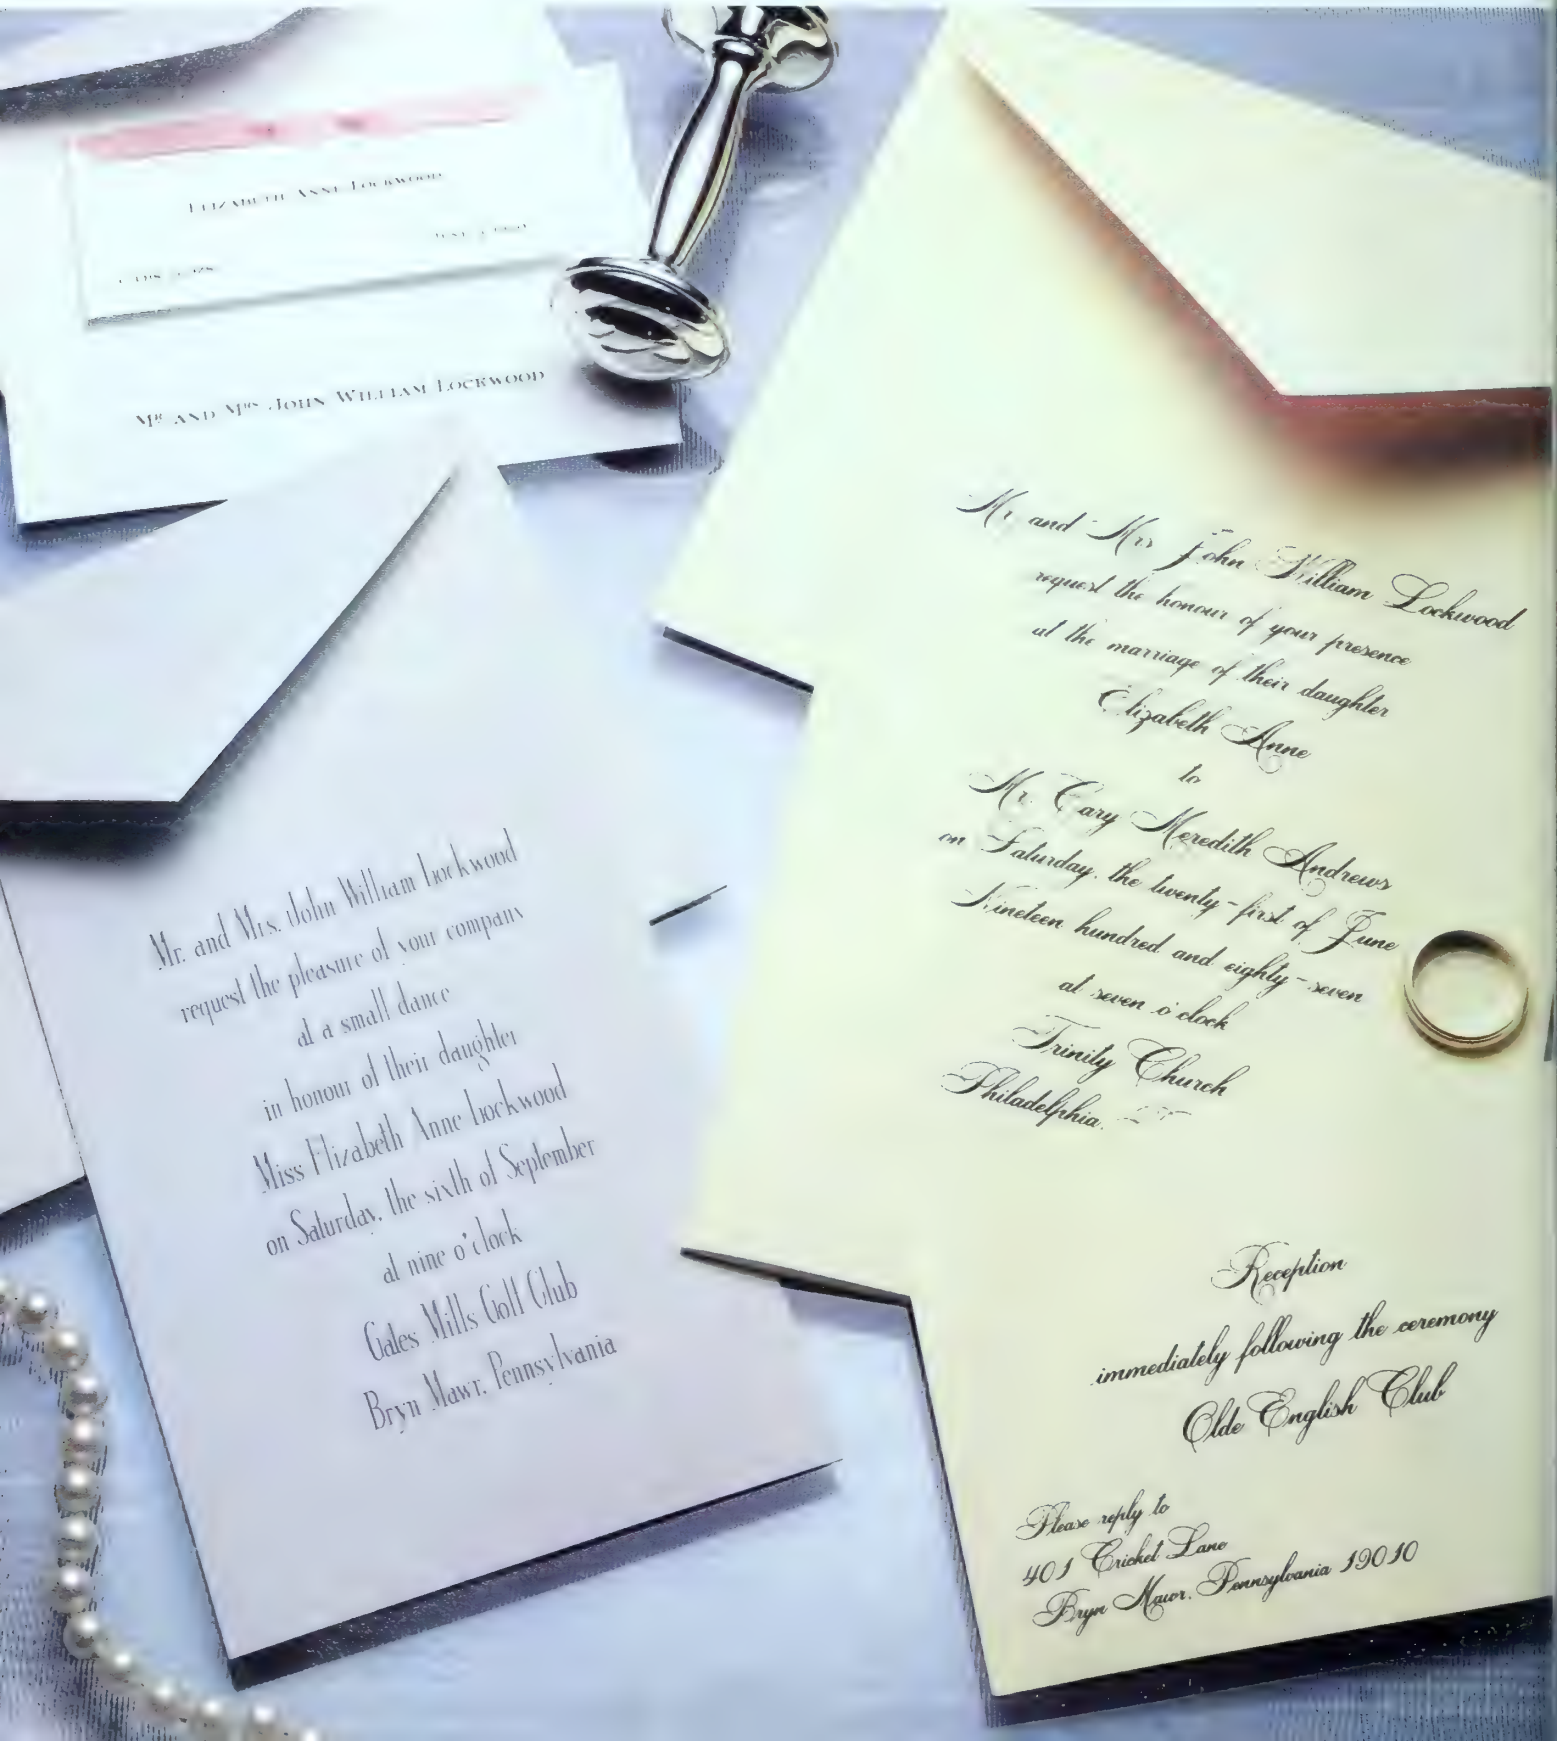 ELIZABETH ANNE LOCKWOOD
MR. AND MRS. JOHN WILLIAM LOCKWOOD
Mr. and Mrs. John William Lockwood
request the pleasure of your company
at a small dance
in honour of their daughter
Miss Elizabeth Anne Lockwood
on Saturday, the sixth of September
at nine o'clock
Gates Mills Golf Club
Bryn Mawr, Pennsylvania
Mr. and Mrs. John William Lockwood
request the honour of your presence
at the marriage of their daughter
Elizabeth Anne
to
Mr. Cary Meredith Andrews
on Saturday, the twenty-first of June
Nineteen hundred and eighty-seven
at seven o'clock
Trinity Church
Philadelphia.
Reception
immediately following the ceremony
Olde English Club
Please reply to
401 Cricket Lane
Bryn Mawr, Pennsylvania 19010